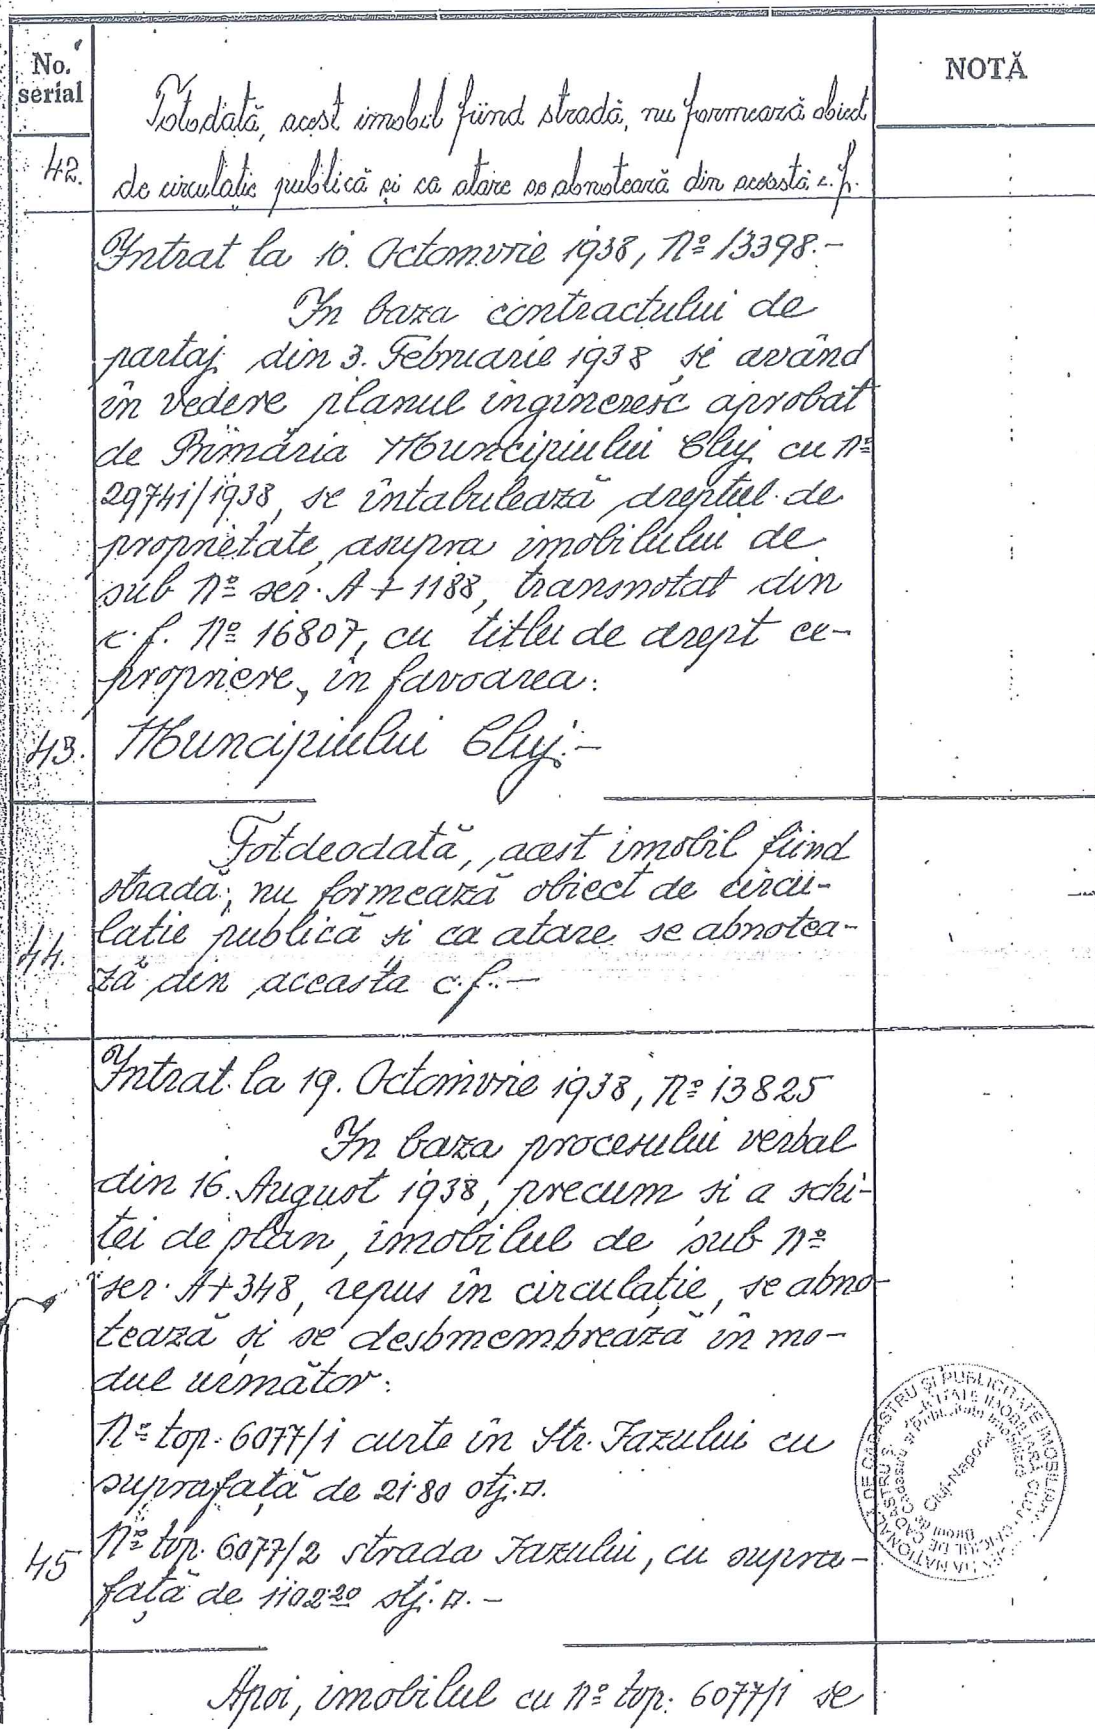 No.
serial
NOTĂ
Totodată, acest imobil fiind stradă, nu formează obiect
42. de circulatie publică și ca atare se abnotează din această c. f.
Intrat la 10. Octomvrie 1938, Nº 13398.-
In baza contractului de
partaj din 3. Februarie 1938 și având
în vedere planul ingineresc aprobat
de Primăria Municipiului Cluj cu Nº
29741/1938, se întabulează dreptul de
proprietate asupra imobilului de
sub Nº ser. A + 1188, transnotat din
c. f. Nº 16807, cu titlu de drept ex-
propriere, în favoarea:
43. Municipiului Cluj.-
Totdeodată, acest imobil fiind
stradă, nu formează obiect de circu-
latie publică și ca atare se abnotea-
44. ză din aceasta c.f.-
Intrat la 19. Octomvrie 1938, Nº 13825
In baza procesului verbal
din 16. August 1938, precum si a schi-
tei de plan, imobilul de sub Nº
ser. A+348, repus în circulație, se abno-
tează și se desbmembrează în mo-
dul următor:
Nº top. 6077/1 curte în Str. Iazului cu
suprafață de 21·80 stj.□.
Nº top. 6077/2 strada Iazului, cu supra-
45 față de 1102²⁰ stj.□.-
Apoi, imobilul cu Nº top. 6077/1 se
DE CADASTRU ȘI PUBLICITATE IMOBILIARĂ
Cluj-Napoca